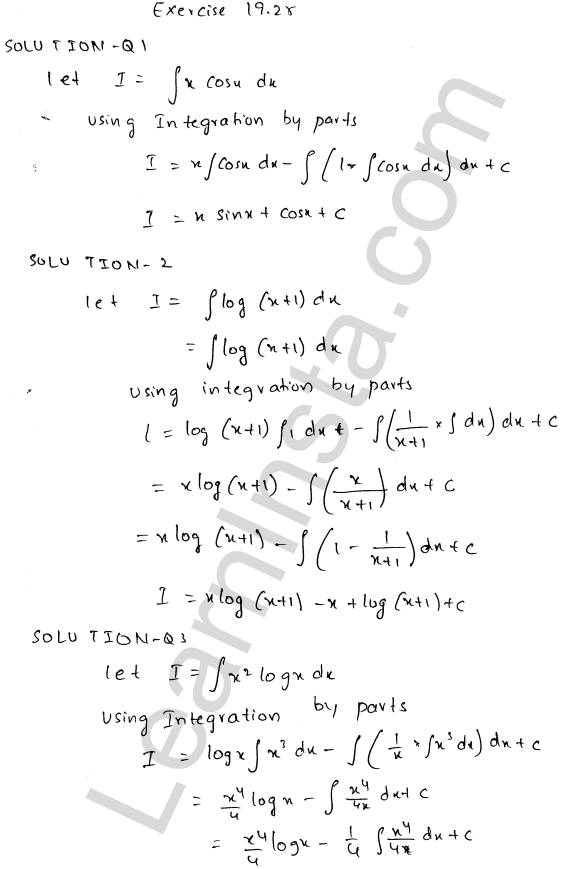 Exercise 19.25
SOLUTION-Q1
let I = ∫x cosx dx
using Integration by parts
I = x∫cosx dx - ∫(1 × ∫cosx dx) dx + c
I = x sinx + cosx + c
SOLUTION-2
let I = ∫log (x+1) dx
= ∫log (x+1) dx
using integration by parts
I = log (x+1) ∫1 dx - ∫(1/(x+1) × ∫dx) dx + c
= x log (x+1) - ∫(x/(x+1)) dx + c
= x log (x+1) - ∫(1 - 1/(x+1)) dx + c
I = x log (x+1) - x + log (x+1) + c
SOLUTION-Q3
let I = ∫x² logx dx
using Integration by parts
I = logx ∫x³ dx - ∫(1/x × ∫x³ dx) dx + c
= x⁴/4 logx - ∫x⁴/4x dx + c
= x⁴/4 logx - 1/4 ∫x⁴/4x dx + c
LearnInsta.com